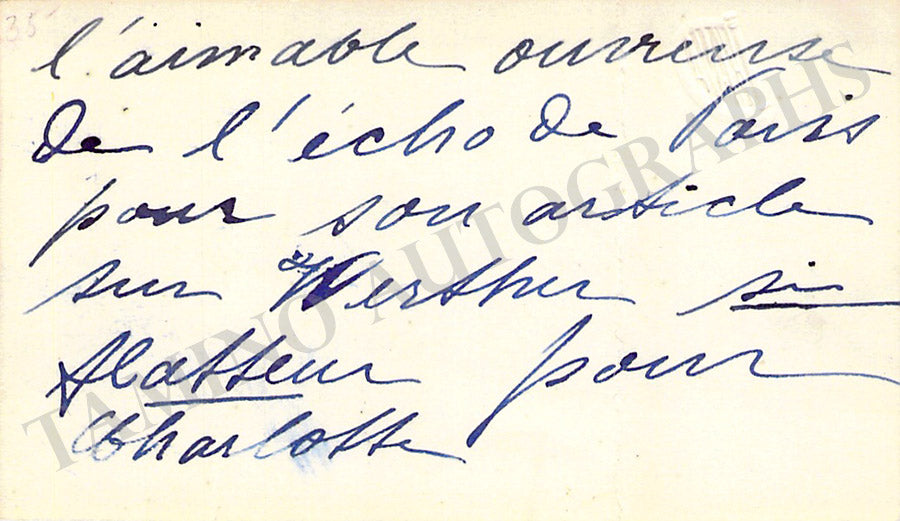 35
l'aimable ouvreuse
de l'écho de Paris
pour son article
sur "Werther si
flatteur pour
Charlotte
TAMINO AUTOGRAPHS